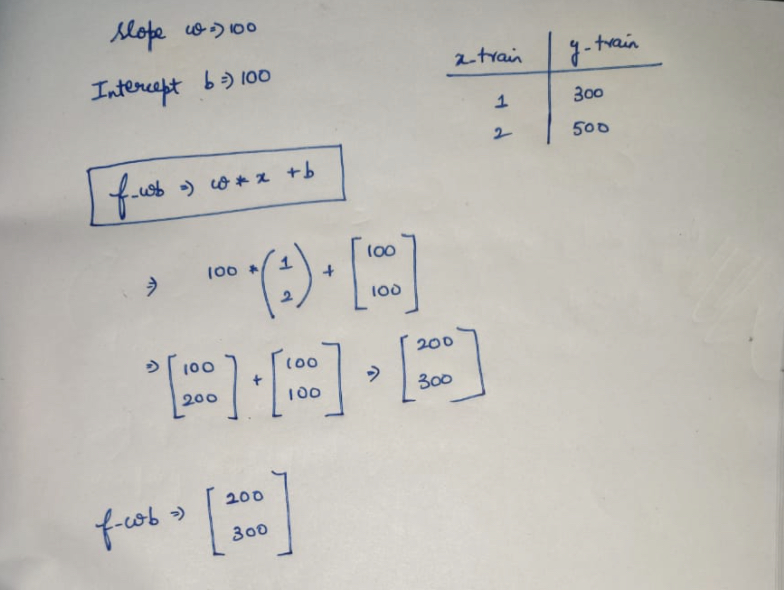 Slope w => 100
Intercept b => 100
x-train | y-train
1 | 300
2 | 500
f-wb => w * x + b
=> 100 * (1 2) + [100 100]
=> [100 200] + [100 100] => [200 300]
f-wb => [200 300]